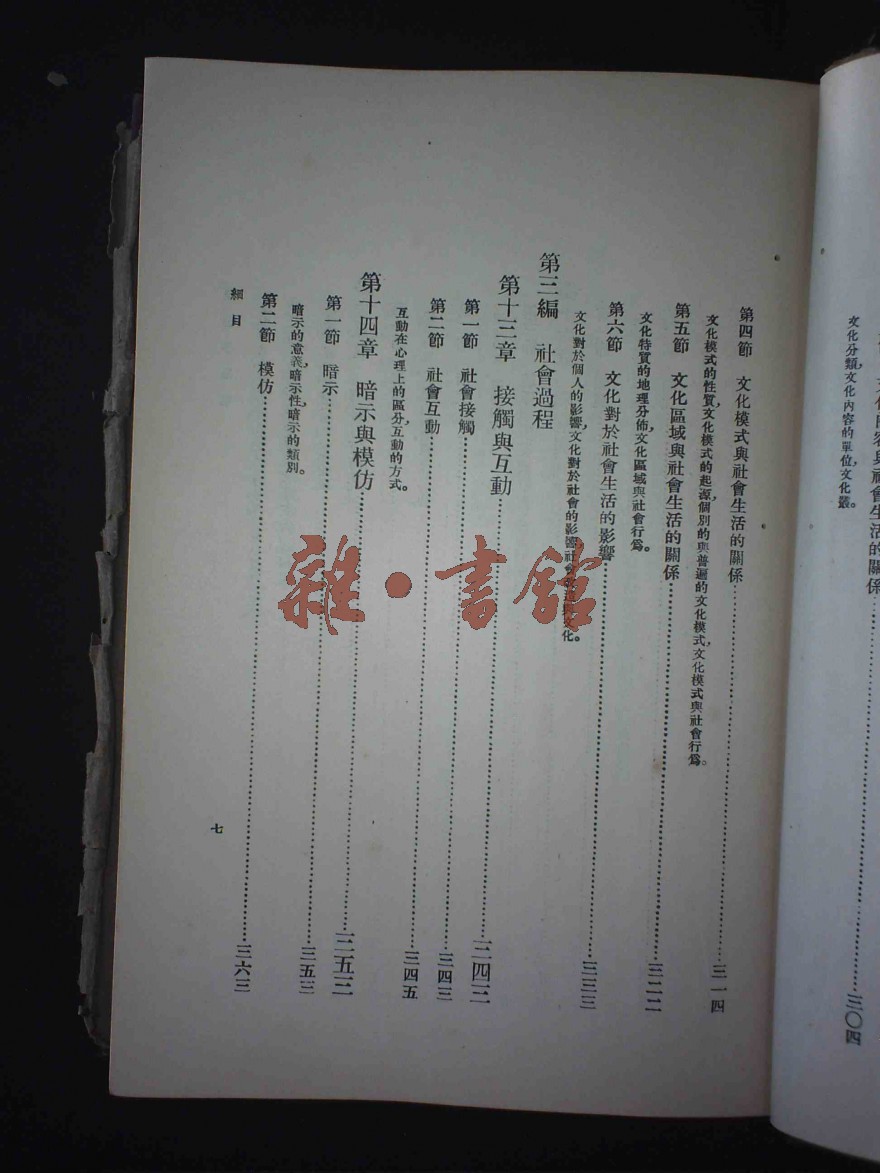 文化分類，文化內容的單位，文化叢。
三〇四
第四節　文化模式與社會生活的關係……三一四
文化模式的性質，文化模式的起源，個別的與普遍的文化模式，文化模式與社會行爲。
第五節　文化區域與社會生活的關係……三二二
文化特質的地理分佈，文化區域與社會行爲。
第六節　文化對於社會生活的影響……三三三
文化對於個人的影響，文化對於社會的影響，社會
化。
第三編　社會過程
第十三章　接觸與互動……三四三
第一節　社會接觸……三四三
第二節　社會互動……三四五
互動在心理上的區分，互動的方式。
第十四章　暗示與模仿……三五三
第一節　暗示……三五三
暗示的意義，暗示性，暗示的類別。
第二節　模仿……三六三
細目
七
雜·書館